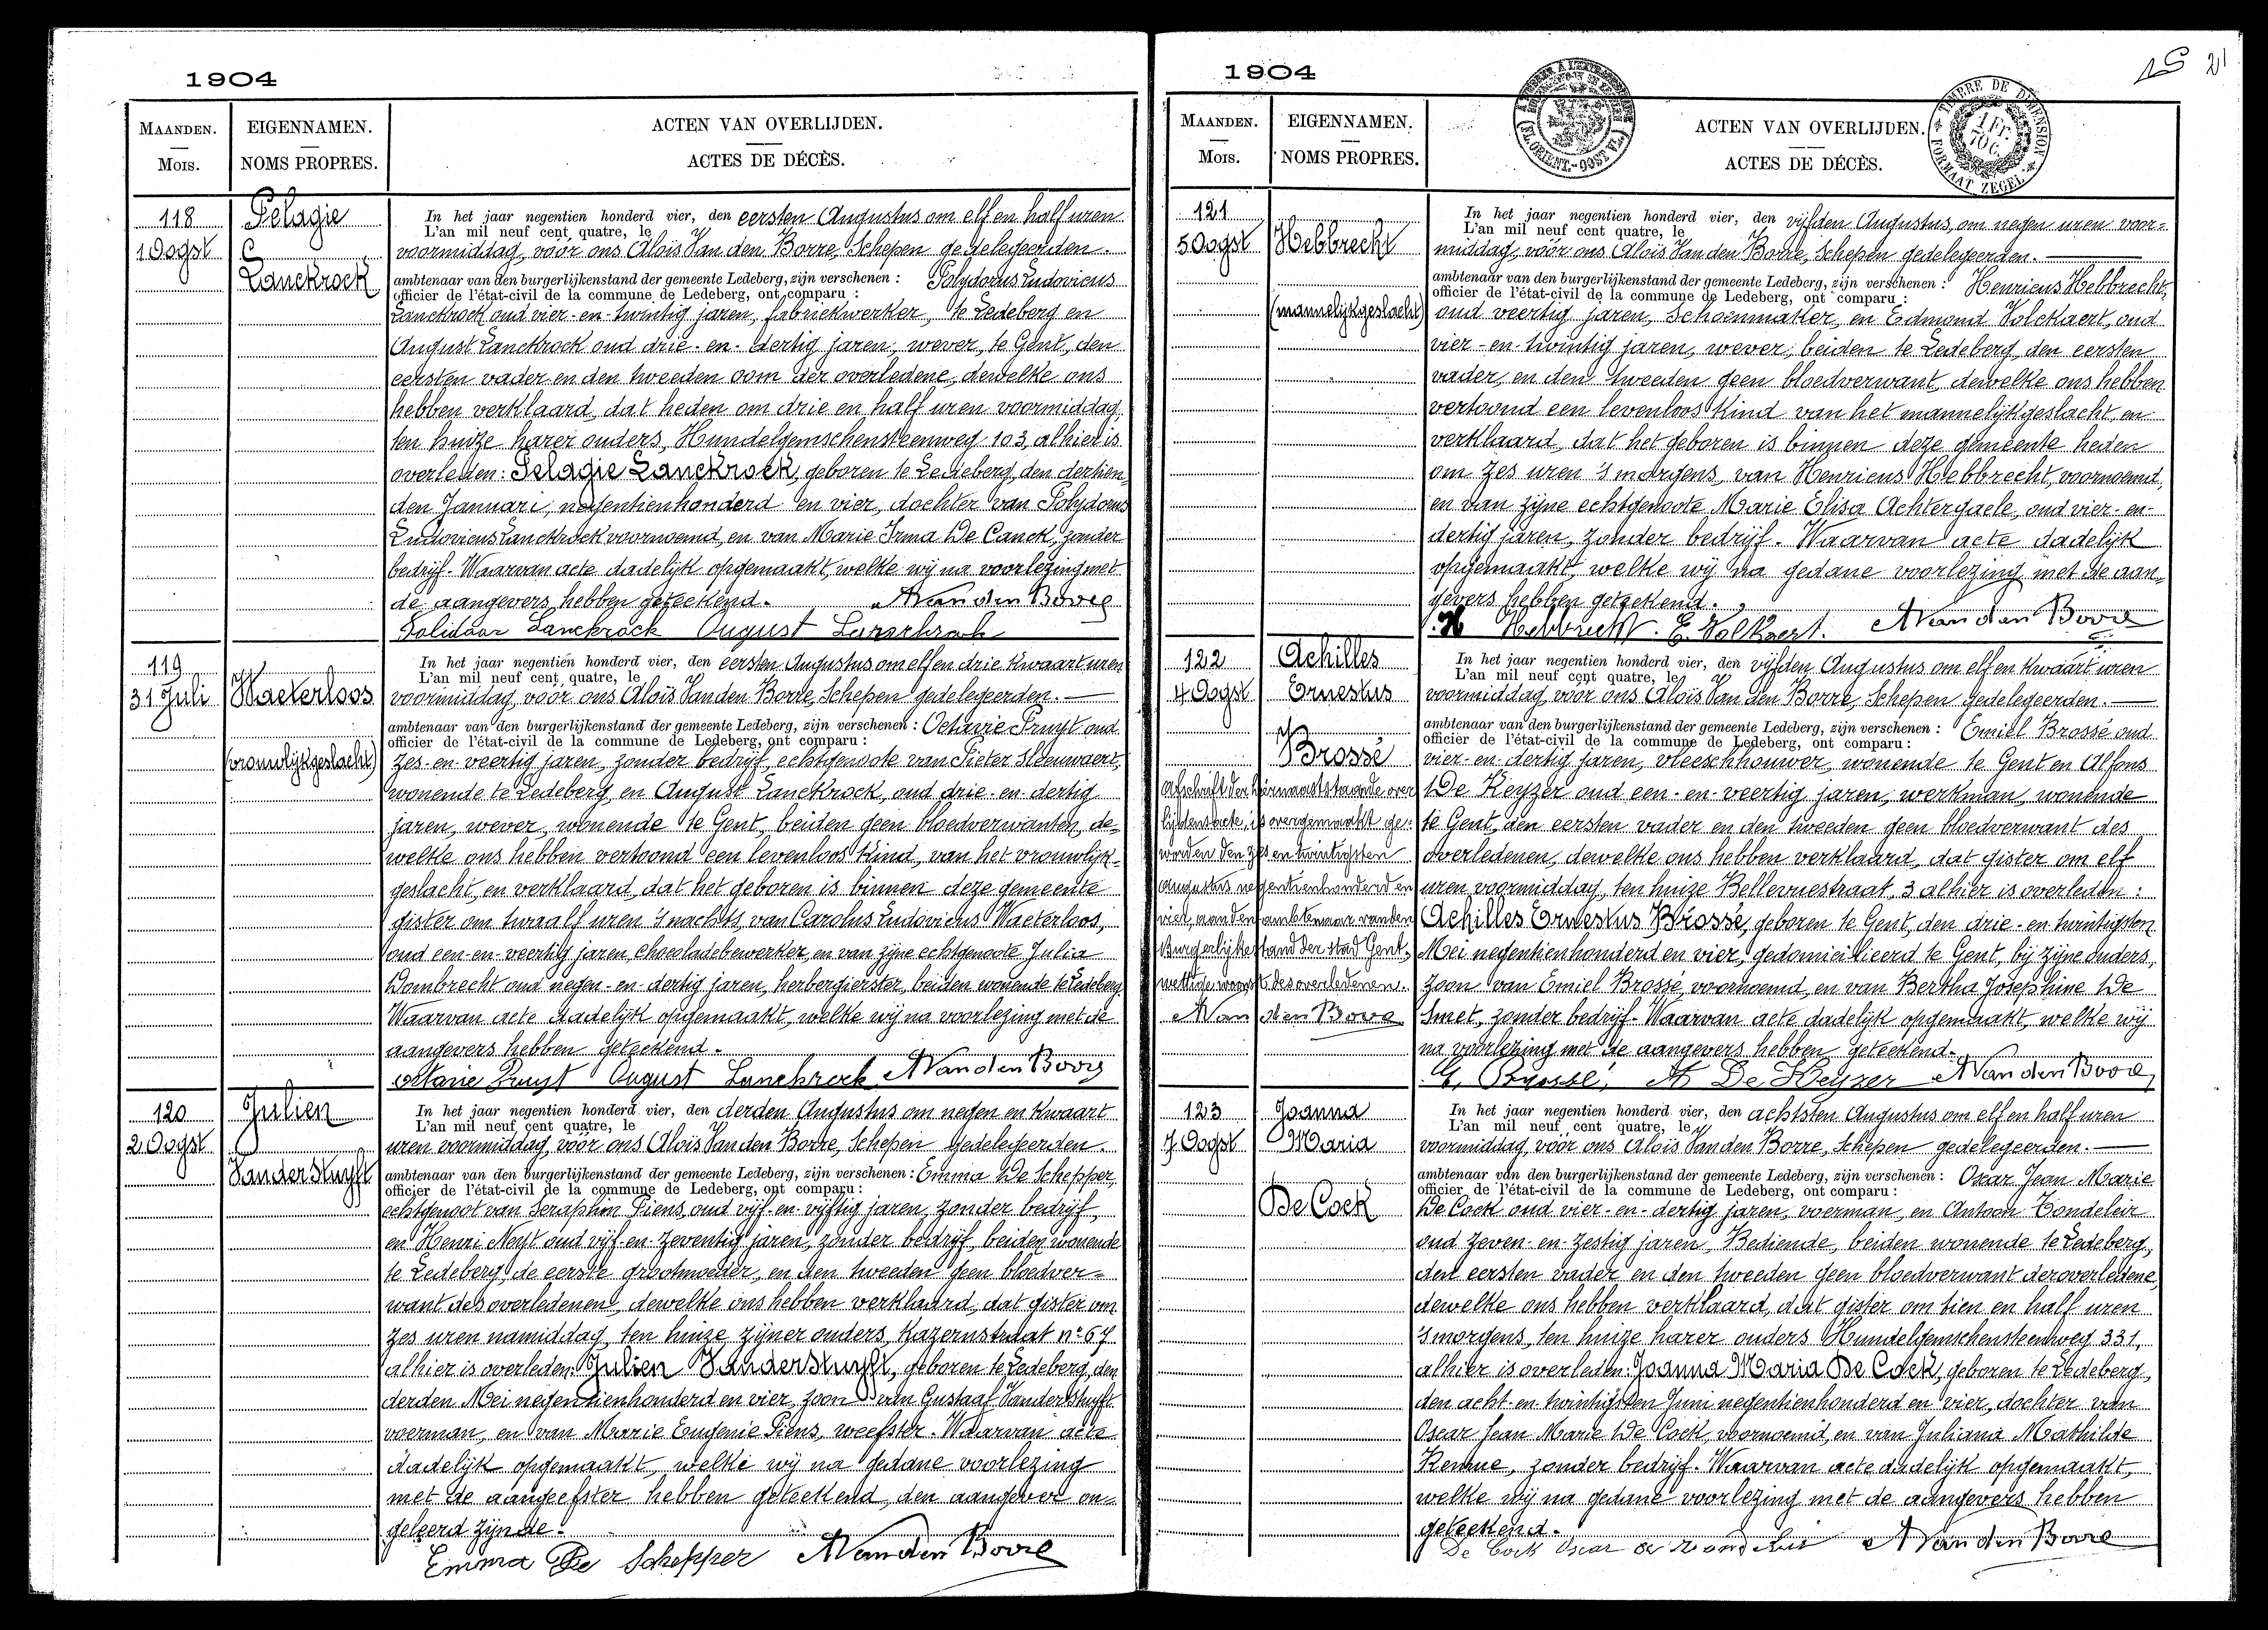 1904
MAANDEN.
Mois.
EIGENNAMEN.
NOMS PROPRES.
ACTEN VAN OVERLIJDEN.
ACTES DE DÉCÈS.
118
1 Oogst
Pelagie
Lanckrock
In het jaar negentien honderd vier, den eersten Augustus om elf en half uren
L'an mil neuf cent quatre, le
voormiddag, voor ons Alois Van den Borre, Schepen gedelegeerden.
ambtenaar van den burgerlijkenstand der gemeente Ledeberg, zijn verschenen : Polydorus Ludovicus
officier de l'état-civil de la commune de Ledeberg, ont comparu :
Lanckrock oud vier-en-twintig jaren, fabriekwerker, te Ledeberg en
August Lanckrock oud drie-en-dertig jaren, wever, te Gent, den
eersten vader en den tweeden oom der overledene, dewelke ons
hebben verklaard, dat heden om drie en half uren voormiddag
ten huize harer ouders, Hundelgemschensteenweg 103, alhier is
overleden: Pelagie Lanckrock, geboren te Ledeberg, den dertien-
den Januari, negentienhonderd en vier, dochter van Polydorus
Ludovicus Lanckrock voornoemd, en van Marie Irma De Canck, zonder
bedrijf. Waarvan acte dadelijk opgemaakt, welke wij na voorlezing met
de aangevers hebben geteekend. A Van den Borre
Polidoor Lanckrock August Lanckrock
119
31 Juli
Waeterloos
(vrouwlijkgeslacht)
In het jaar negentien honderd vier, den eersten Augustus om elf en drie kwaart uren
L'an mil neuf cent quatre, le
voormiddag, voor ons Alois Van den Borre, Schepen gedelegeerden.
ambtenaar van den burgerlijkenstand der gemeente Ledeberg, zijn verschenen : Octavie Pruyt oud
officier de l'état-civil de la commune de Ledeberg, ont comparu :
zes-en-veertig jaren, zonder bedrijf, echtgenoote van Pieter Sleeuwaert,
wonende te Ledeberg, en August Lanckrock, oud drie-en-dertig
jaren, wever, wonende te Gent, beiden geen bloedverwanten, de-
welke ons hebben vertoond een levenloos kind, van het vrouwlijk-
geslacht, en verklaard, dat het geboren is binnen deze gemeente
gister om twaalf uren 's nachts, van Carolus Ludovicus Waeterloos,
oud een-en-veertig jaren, chocoladebewerker, en van zijne echtgenoote Julia
Dombrecht oud negen-en-dertig jaren, herbergierster, beiden wonende te Ledeberg
Waarvan acte dadelijk opgemaakt, welke wij na voorlezing met de
aangevers hebben geteekend.
Octavie Pruyt August Lanckrock A Van den Borre
120
2 Oogst
Julien
Vanderstuyft
In het jaar negentien honderd vier, den derden Augustus om negen en kwaart
L'an mil neuf cent quatre, le
uren voormiddag, voor ons Alois Van den Borre, Schepen gedelegeerden.
ambtenaar van den burgerlijkenstand der gemeente Ledeberg, zijn verschenen : Emma De Schepper,
officier de l'état-civil de la commune de Ledeberg, ont comparu :
echtgenoot van Seraphin Piens, oud vijf-en-vijftig jaren, zonder bedrijf,
en Henri Neyt oud vijf-en-zeventig jaren, zonder bedrijf, beiden wonende
te Ledeberg, de eerste grootmoeder, en den tweeden geen bloedver-
want des overledenen, dewelke ons hebben verklaard, dat gister om
zes uren namiddag, ten huize zijner ouders, Kazernstraat n° 67
alhier is overleden: Julien Vanderstuyft, geboren te Ledeberg, den
derden Mei negentienhonderd en vier, zoon van Gustaaf Vanderstuyft
voerman, en van Marie Eugenie Piens, weefster. Waarvan acte
dadelijk opgemaakt, welke wij na gedane voorlezing
met de aangeefster hebben geteekend, den aangever on-
geleerd zijnde.
Emma De Schepper A Van den Borre
1904
21
MAANDEN.
Mois.
EIGENNAMEN.
NOMS PROPRES.
ACTEN VAN OVERLIJDEN.
ACTES DE DÉCÈS.
TIMBRE DE DIMENSION
1 FR. 70 C.
FORMAAT ZEGEL
121
5 Oogst
Hebbrecht
(mannelijkgeslacht)
In het jaar negentien honderd vier, den vijfden Augustus, om negen uren voor-
L'an mil neuf cent quatre, le
middag, voor ons Alois Van den Borre, Schepen gedelegeerden.
ambtenaar van den burgerlijkenstand der gemeente Ledeberg, zijn verschenen : Henricus Hebbrecht,
officier de l'état-civil de la commune de Ledeberg, ont comparu :
oud veertig jaren, Schoenmaker, en Edmond Volckaert, oud
vier-en-twintig jaren, wever, beiden te Ledeberg den eersten
vader, en den tweeden geen bloedverwant, dewelke ons hebben
vertoond een levenloos kind van het mannelijkgeslacht, en
verklaard, dat het geboren is binnen deze gemeente heden
om zes uren 's morgens, van Henricus Hebbrecht, voornoemd,
en van zijne echtgenoote Marie Elisa Achtergaele, oud vier-en-
dertig jaren, zonder bedrijf. Waarvan acte dadelijk
opgemaakt, welke wij na gedane voorlezing met de aan-
gevers hebben geteekend.
H Hebbrecht. E. Volkaert. A Van den Borre
122
4 Oogst
Achilles
Ernestus
Brossé
Afschrift der hiernaaststaande over
lijdensacte, is overgemaakt ge-
worden den zes en twintigsten
Augustus negentienhonderd en
vier, aan den ambtenaar van den
Burgerlijke stand der stad Gent,
wettige woonst des overledenen.
A Van den Borre
In het jaar negentien honderd vier, den vijfden Augustus om elf en kwaart uren
L'an mil neuf cent quatre, le
voormiddag, voor ons Alois Van den Borre, Schepen gedelegeerden.
ambtenaar van den burgerlijkenstand der gemeente Ledeberg, zijn verschenen : Emiel Brossé oud
officier de l'état-civil de la commune de Ledeberg, ont comparu :
vier-en-dertig jaren, vleeschhouwer, wonende te Gent en Alfons
De Keyzer oud een-en-veertig jaren, werkman, wonende
te Gent, den eersten vader en den tweeden geen bloedverwant des
overledenen, dewelke ons hebben verklaard, dat gister om elf
uren voormiddag, ten huize Bellevuestraat, 3 alhier is overleden :
Achilles Ernestus Brossé, geboren te Gent, den drie-en-twintigsten
Mei negentienhonderd en vier, gedomicilieerd te Gent, bij zijne ouders,
zoon van Emiel Brossé, voornoemd, en van Bertha Josephine De
Smet, zonder bedrijf. Waarvan acte dadelijk opgemaakt, welke wij
na voorlezing met de aangevers hebben geteekend.
E. Brossé, A De Keyzer A Van den Borre
123
7 Oogst
Joanna
Maria
De Cock
In het jaar negentien honderd vier, den achtsten Augustus om elf en half uren
L'an mil neuf cent quatre, le
voormiddag, voor ons Alois Van den Borre, Schepen gedelegeerden.
ambtenaar van den burgerlijkenstand der gemeente Ledeberg, zijn verschenen : Oscar Jean Marie
officier de l'état-civil de la commune de Ledeberg, ont comparu :
De Cock oud vier-en-dertig jaren, voerman, en Antoon Tondeleir
oud zeven-en-zestig jaren, Bediende, beiden wonende te Ledeberg,
den eersten vader en den tweeden geen bloedverwant der overledene,
dewelke ons hebben verklaard, dat gister om tien en half uren
's morgens, ten huize harer ouders Hundelgemschensteenweg 331,
alhier is overleden: Joanna Maria De Cock, geboren te Ledeberg,
den acht-en-twintigsten Juni negentienhonderd en vier, dochter van
Oscar Jean Marie De Cock, voornoemd, en van Juliana Mathilde
Kemme, zonder bedrijf. Waarvan acte dadelijk opgemaakt,
welke wij na gedane voorlezing met de aangevers hebben
geteekend.
De Cock Oscar A Van den Borre